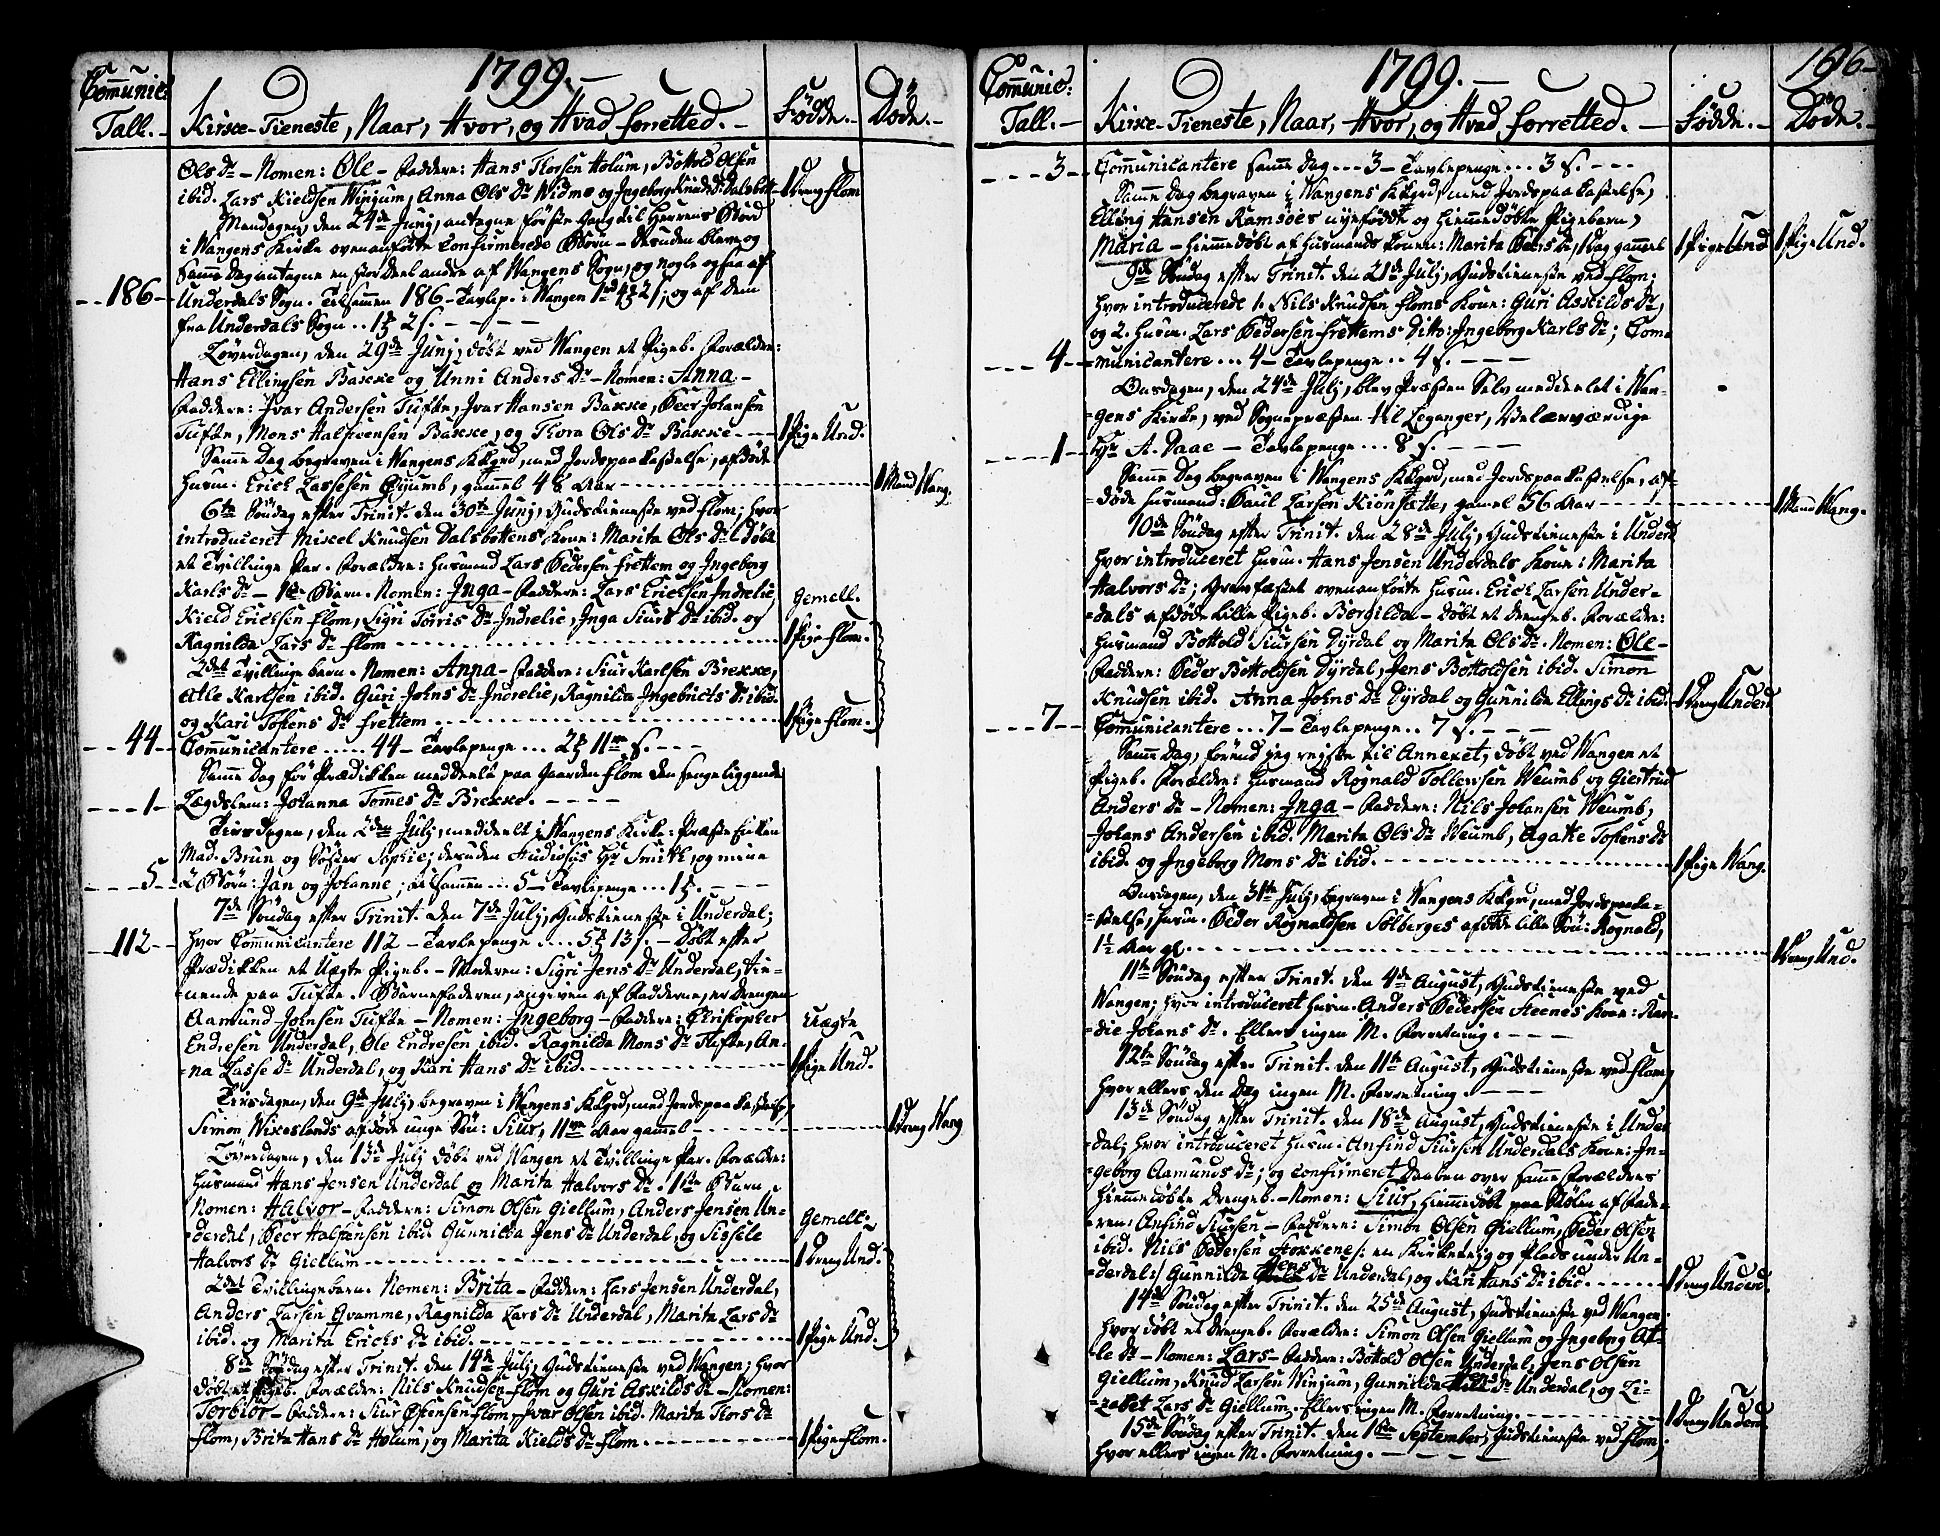 1799.
Communic: Tall.
Kirke-Tieneste, Naar, Hvor, og Hvad forretted.
Fødde.
Døde.
Ols Dr – Nomen: Ole – Faddere: Hans Thorsen Holum, Bottold Olsen
ibid. Lars Kieldsen Winjum, Anna Ols Dr Widme og Ingeborg Knuds Dr Dalsbott
1 Dreng Flom
Mandagen, den 24de Junj, antagne første Gang til Herrens Bord
i Wangens Kirke ovenanførte Confirmerede Børn – Desuden bleve og
samme Dag antagne en stor Deel andre af Wangens Sogn, og nogle ogsaa af
186
Underdals Sogn. Tilsammen 186 – Tavlep. i Wangen 1rd 4ƻ 2s; og af dem
fra Underdals Sogn .. 1ƻ 2s.
Løverdagen, den 29de Junj, døbt ved Wangen et Pigeb. Forældre:
Hans Ellingsen Bakke og Unni Anders Dr – Nomen: Anna –
Faddere: Ivar Andersen Tufte, Ivar Hansen Bakke, Peer Johansen
Tufte, Mons Halsteensen Bakke, og Thora Ols Dr Bakke
1 Pige Und.
Samme Dag begraven i Wangens Kkgrd, med Jordspaakastelse, afdøde
Husm. Erich Lassesen Øyumb, gammel 48 Aar
1 Mand Wang.
6te Søndag efter Trinit. den 30te Junj, Gudstieneste ved Flom; hvor
introduceret Mikkel Knudsen Dalsbottens Kone: Marita Ols Dr. Døbt
et Tvillinge Par. Forældre: Husmand Lars Pedersen Frettem og Ingeborg
Karls Dr – 1te Barn. Nomen: Inga – Faddere: Lars Erichsen Indrelie,
Gemell.
Kield Erichsen Flom, Sigri Torris Dr Indrelie, Inga Siurs Dr ibid. og
Ragnilda Lars Dr Flom
1 Pige Flom.
2det Tvillinge barn. Nomen: Anna – Faddere: Siur Karlsen Brekke,
Atle Karlsen ibid. Guri Johns Dr Indrelie, Ragnilda Ingebricts Dr ibid.
og Kari Tostens Dr Frettem
1 Pige Flom.
44
Communicantere ..... 44 – Tavlepenge ... 2ƻ 11 s.
Samme Dag før Prædikken meddeelt paa Gaarden Flom den sengeliggende
1
Lægdslem: Johanna Tommes Dr Brekke.
Tirsdagen, den 2den Julj, meddeelt i Wangens Kirke: Præste Enken
Mad. Brun og Søster Sophie; desuden Studiosus Hr Smith, og mine
5
2 Børn: Jan og Johanne; tilsammen ... 5 – Tavlepenge ... 1ƻ.
7de Søndag efter Trinit. den 7de Julj, Gudstieneste i Underdal;
112
hvor Communicantere 112 – Tavlepenge .... 5ƻ 13s. – Døbt efter
Prædikken et Uægte Pigeb. – Moderen: Sigri Jens Dr Underdal, tie-
nende paa Tufte. Barnefaderen, angiven af Fadderne, er Drengen
Aamund Johnsen Tufte – Nomen: Ingeborg – Faddere: Christopher
Uægte
Endresen Underdal, Ole Endresen ibid. Ragnilda Mons Dr Tufte, An-
na Lasse Dr Underdal, og Kari Hans Dr ibid.
1 Pige Und.
Tirsdagen, den 9de Julj, begraven i Wangens Kkgrd, med Jordspaakastelse,
Simon Wikeslands afdøde unge Søn: Siur, 11 Aar gammel
1 Dreng Wang
Løverdagen, den 13de Julj døbt ved Wangen et Tvillinge Par. Forældre:
Husmand Hans Jensen Underdal og Marita Halvors Dr. 1te Barn.
Nomen: Halvor – Faddere: Simon Olsen Giellum, Anders Jensen Un-
Gemell.
derdal, Peer Halstensen ibid. Gunnilda Jens Dr Underdal, og Sissele
Halvors Dr Giellum
1 Dreng Und.
2det Tvillingebarn. Nomen: Brita – Faddere: Lars Jensen Underdal,
Anders Larsen Qvamme, Ragnilda Lars Dr Underdal, Marita Lars Dr
ibid. og Marita Erichs Dr ibid.
1 Pige Und.
8de Søndag efter Trinit. den 14de Julj, Gudstieneste ved Wangen; hvor
døbt et Pigeb. Forældre: Nils Knudsen Flom og Guri Askilds Dr – Nomen:
Torbiør – Faddere: Siur Østensen Flom, Ivar Olsen ibid. Marita Thors Dr
Flom, Brita Hans Dr Holum, og Marita Kields Dr Flom.
1 Pige Flom.
1799.
166
Communic: Tall.
Kirke-Tieneste, Naar, Hvor, og Hvad forretted.
Fødde.
Døde.
3
Communicantere samme Dag ... 3 – Tavlepenge ... 3 s.
Samme Dag begraven i Wangens Kkgrd, med Jordspaakastelse,
Elling Hansen Ramsøes nyefødde og hiemmedøbte Pigebarn,
Maria – hiemmedøbt af Husmands Konen: Marita Peers Dr, 1 Dag gammel
1 Pige Und.
1 Pige Und.
9de Søndag efter Trinit. den 21de Julj, Gudstieneste ved Flom;
hvor introducerede 1. Nils Knudsen Floms Kone: Guri Askilds Dr,
og 2. Husm. Lars Pedersen Frettems Ditto: Ingeborg Karls Dr; Com-
4
municantere ... 4 – Tavlepenge .. 4 s.
Onsdagen, den 24de Julj, blev Præsten Selv meddeelet i Wan-
gens Kirke, ved Sognepræsten til Leganger, Velærværdige
1
Hr A. Daae – Tavlepenge ... 8 s.
Samme Dag begraven i Wangens Kkgrd, med Jordspaakastelse, af-
døde Husmand: Paul Larsen Kiønsætte, gamel 56 Aar
1 Mand Wang.
10de Søndag efter Trinit. den 28de Julj, Gudstieneste i Underd.
hvor introduceret Husm. Hans Jensen Underdals Kone: Marita
Halvors Dr; Gravfæstet ovenanførte Husm. Erich Larsen Under-
dals afdøde lille Pigeb. Borgilda – døbt et Drengeb. Forældre:
Husmand Bottold Siursen Dyrdal og Marita Ols Dr. Nomen: Ole –
Faddere: Peder Bottoldsen Dyrdal, Jens Bottoldsen ibid. Simon
Knudsen ibid. Anna Johns Dr Dyrdal og Gunnilda Ellings Dr ibid.
1 Dreng Underd.
7
Communicantere ... 7 – Tavlepenge .. 7 s.
Samme Dag, førend jeg rejste til Annexet, døbt ved Wangen et
Pigeb. Forældre: Husmand Rognald Tollewsen Weumb og Giertrud
Anders Dr – Nomen: Inga – Faddere: Nils Johansen Weumb,
Johans Andersen ibid. Marita Ols Dr Weumb, Agatha Tostens Dr
ibid. og Ingeborg Mons Dr ibid.
1 Pige Wang.
Onsdagen, den 31te Julj, begraven i Wangens Kkgrd, med Jordspaaka-
stelse, Husm. Peder Rognaldsen Solberges afdøde lille Søn: Rognald,
1½ Aar gl.
1 Dreng Und.
11te Søndag efter Trinit. den 4de August, Gudstieneste ved
Wangen; hvor introduceret Husm. Anders Pedersen Steenes Kone: Ran-
die Johans Dr. Ellers ingen M. Forretning.
12te Søndag efter Trinit. den 11te August, Gudstieneste ved Flom,
hvor ellers den Dag ingen M. Forretning.
13de Søndag efter Trinit. den 18de August, Gudstieneste i Under
dal; hvor introduceret Husm. Anfind Siursen Underdals Kone: In-
geborg Aamunds Dr; og confirmeret Daaben over samme Forældres
hiemmedøbte Drengeb. – Nomen: Siur, hiemmedøbt paa Stølen af Fade-
ren: Anfind Siursen – Faddere: Simon Olsen Giellum, Peder Olsen
ibid. Nils Pedersen Stokkene/: en Kirkeneyg og Plads under Un-
derdal:/ Gunnilda Jens Dr Underdal, og Kari Hans Dr ibid.
1 Dreng Underd.
14de Søndag efter Trinit. den 25de August, Gudstieneste ved Wangen;
hvor døbt et Drengeb. Forældre: Simon Olsen Giellum og Ingeborg At-
le Dr – Nomen: Lars – Faddere: Bottold Olsen Underdal, Jens Olsen
Giellum, Knud Larsen Winjum, Gunnilda Dr Underdal, og Li-
zabet Lars Dr Giellum. Ellers ingen M. Forretning.
1 Dreng Underd.
15de Søndag efter Trinit. den 1ste September, Gudstieneste ved Flom,
hvor ellers ingen M. Forretning.